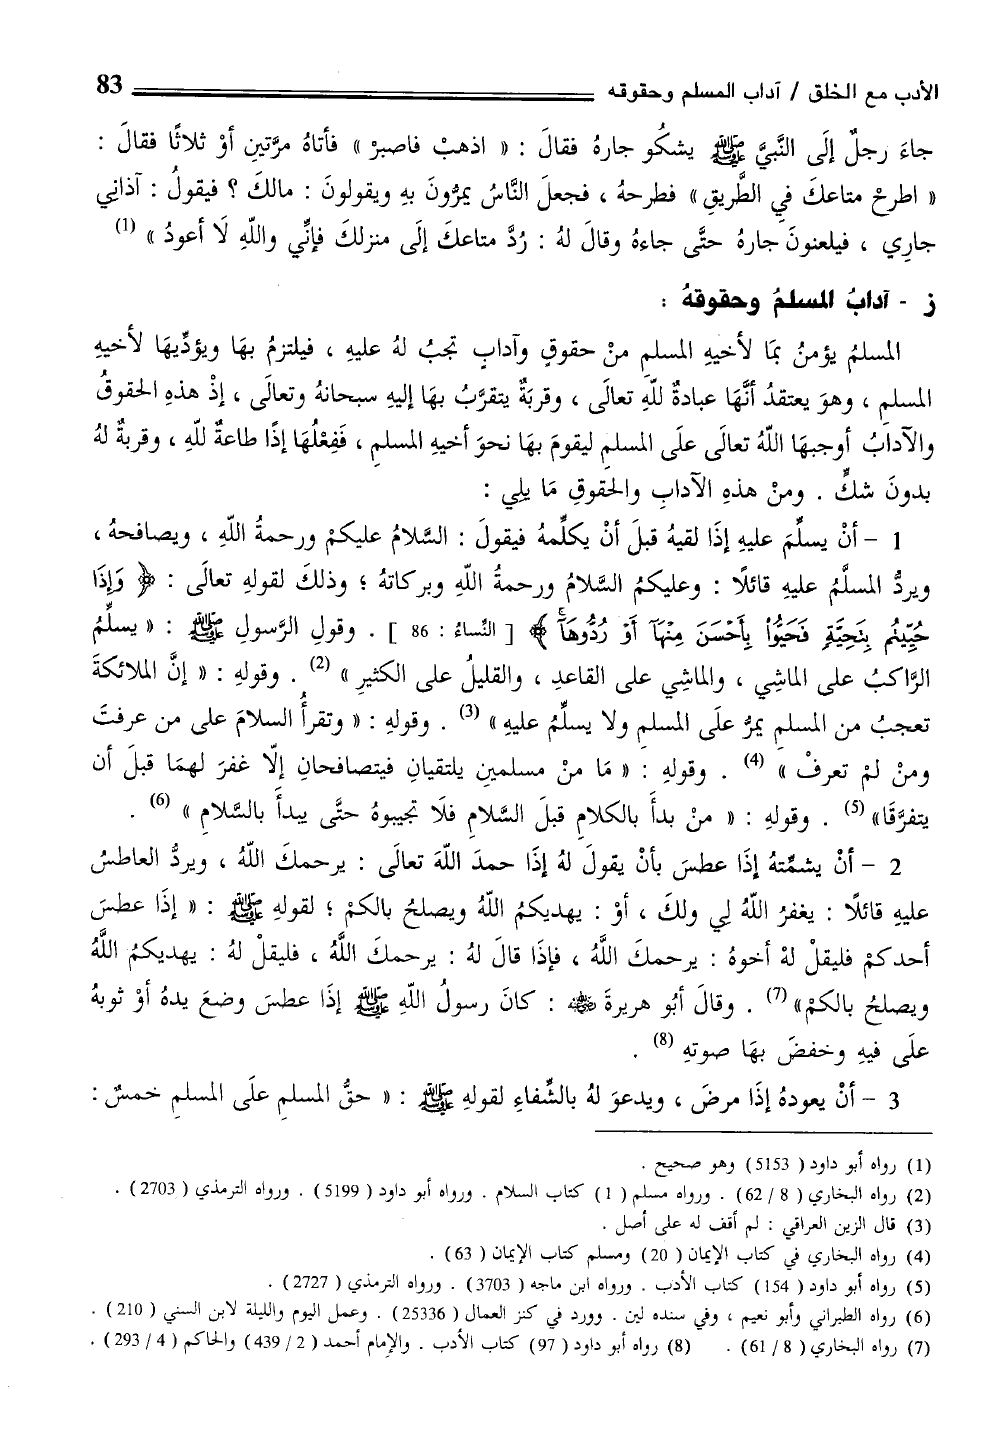 الأدب مع الخلق / آداب المسلم وحقوقه 83
جاءَ رجلٌ إلَى النَّبيِّ ﷺ يشكُو جارهُ فقالَ : « اذهبْ فاصبرْ » فأتاهُ مرَّتينِ أوْ ثلاثًا فقالَ :
« اطرحْ متاعكَ في الطَّريقِ » فطرحهُ ، فجعلَ النَّاسُ يمرُّونَ بهِ ويقولونَ : مالكَ ؟ فيقولُ : آذانِي
جارِي ، فيلعنونَ جارهُ حتَّى جاءهُ وقالَ لهُ : رُدَّ متاعكَ إلَى منزلكَ فإنِّي واللّهِ لَا أعودُ » (1)
ز - آدابُ المسلمُ وحقوقهُ :
المسلمُ يؤمنُ بمَا لأخيهِ المسلمِ منْ حقوقٍ وآدابٍ تجبُ لهُ عليهِ ، فيلتزمُ بهَا ويؤدِّيهَا لأخيهِ
المسلمِ ، وهوَ يعتقدُ أنَّهَا عبادةٌ للّهِ تعالَى ، وقربَةٌ يتقرَّبُ بهَا إليهِ سبحانهُ وتعالَى ، إذْ هذهِ الحقوقُ
والآدابُ أوجبهَا اللّهُ تعالَى علَى المسلمِ ليقومَ بهَا نحوَ أخيهِ المسلمِ ، فَفِعْلُهَا إذًا طاعةٌ للّهِ ، وقربةٌ لهُ
بدونَ شكٍّ . ومنْ هذهِ الآدابِ والحقوقِ مَا يلِي :
1 - أنْ يسلِّمَ عليهِ إذَا لقيهُ قبلَ أنْ يكلِّمهُ فيقولَ : السَّلامُ عليكمْ ورحمةُ اللّهِ ، ويصافحهُ ،
ويردُّ المسلَّمُ عليهِ قائلًا : وعليكمُ السَّلامُ ورحمةُ اللّهِ وبركاتهُ ؛ وذلكَ لقولهِ تعالَى : ﴿ وَإِذَا
حُيِّيتُم بِتَحِيَّةٍ فَحَيُّوا۟ بِأَحْسَنَ مِنْهَآ أَوْ رُدُّوهَآ ﴾ [ النِّساءُ : 86 ] . وقولِ الرَّسولِ ﷺ : « يسلِّمُ
الرَّاكبُ على الماشِي ، والماشِي على القاعدِ ، والقليلُ على الكثيرِ » (2) . وقولهِ : « إنَّ الملائكةَ
تعجبُ من المسلمِ يمرُّ علَى المسلمِ ولا يسلِّمُ عليهِ » (3) . وقولهِ : « وتقرأُ السلامَ على من عرفتَ
ومنْ لمْ تعرفْ » (4) . وقولهِ : « مَا منْ مسلمينِ يلتقيانِ فيتصافحانِ إلَّا غفرَ لهمَا قبلَ أن
يتفرَّقَا» (5) . وقولهِ : « منْ بدأَ بالكلامِ قبلَ السَّلامِ فلَا تجيبوهُ حتَّى يبدأَ بالسَّلامِ » (6) .
2 - أنْ يشمِّتهُ إذَا عطسَ بأنْ يقولَ لهُ إذَا حمدَ اللّهَ تعالَى : يرحمكَ اللّهُ ، ويردُّ العاطسُ
عليهِ قائلًا : يغفرُ اللّهُ لِي ولكَ ، أوْ : يهديكمُ اللّهُ ويصلحُ بالكمْ ؛ لقولهِ ﷺ : « إذَا عطسَ
أحدكمْ فليقلْ لهْ أخوهُ : يرحمكَ اللّهُ ، فإذَا قالَ لهُ : يرحمكَ اللّهُ ، فليقلْ لهُ : يهديكمُ اللّهُ
ويصلحُ بالكمْ» (7) . وقالَ أبُو هريرةَ رضي الله عنه : كانَ رسولُ اللّهِ ﷺ إذَا عطسَ وضعَ يدهُ أوْ ثوبهُ
علَى فيهِ وخفضَ بهَا صوتهِ (8) .
3 - أنْ يعودهُ إذَا مرضَ ، ويدعوَ لهُ بالشِّفاءِ لقولهِ ﷺ : « حقُّ المسلمِ علَى المسلمِ خمسٌ :
(1) رواه أبو داود ( 5153 ) وهو صحيح .
(2) رواه البخاري ( 8 / 62 ) . ورواه مسلم ( 1 ) كتاب السلام . ورواه أبو داود ( 5199 ) . ورواه الترمذي ( 2703 ) .
(3) قال الزين العراقي : لم أقف له على أصل .
(4) رواه البخاري في كتاب الإيمان ( 20 ) ومسلم كتاب الإيمان ( 63 ) .
(5) رواه أبو داود ( 154 ) كتاب الأدب . ورواه ابن ماجه ( 3703 ) . ورواه الترمذي ( 2727 ) .
(6) رواه الطبراني وأبو نعيم ، وفي سنده لين . وورد في كنز العمال ( 25336 ) . وعمل اليوم والليلة لابن السني ( 210 ) .
(7) رواه البخاري ( 8 / 61 ) . (8) رواه أبو داود ( 97 ) كتاب الأدب . والإمام أحمد ( 2 / 439 ) والحاكم ( 4 / 293 ) .